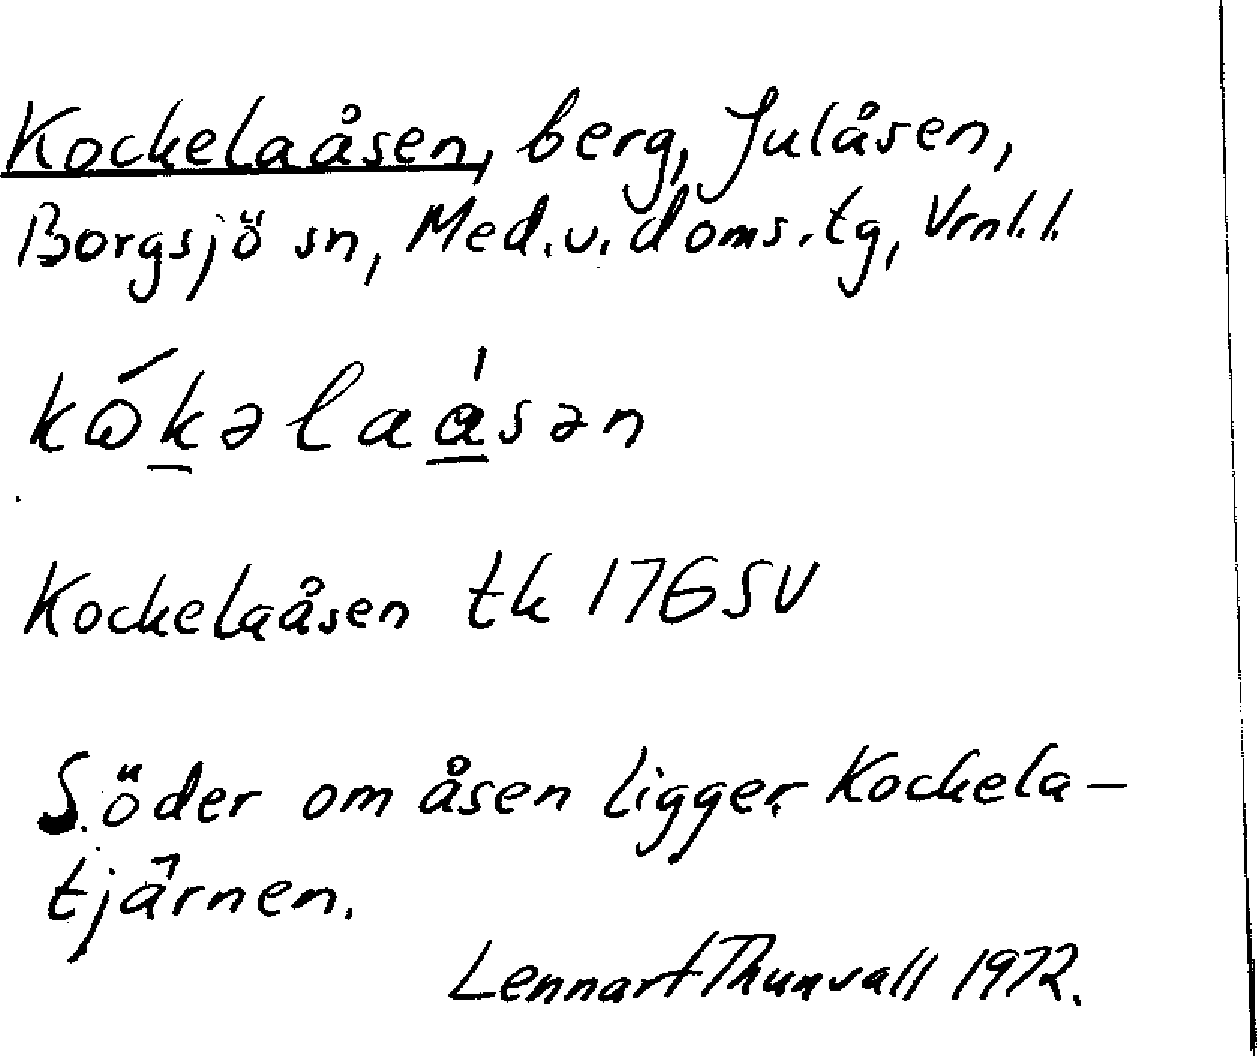 Kockelaåsen, berg, Julåsen,
Borgsjö sn, Med.v.doms.tg, Vrnl.l.
kώk̲əlaá̲sən
Kockelaåsen tk 176SV
Söder om åsen ligger Kockela-
tjärnen.
Lennart Thunvall 1972.